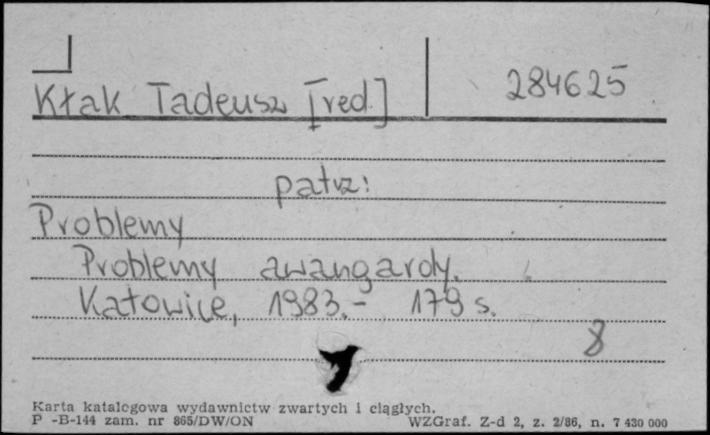 Kłak Tadeusz [red.] 284625
patrz:
Problemy
Problemy awangardy.
Katowice, 1983.- 179 s.
8
Karta katalogowa wydawnictw zwartych i ciągłych.
P -B-144 zam. nr 865/DW/ON WZGraf. Z-d 2, z. 2/86, n. 7 430 000